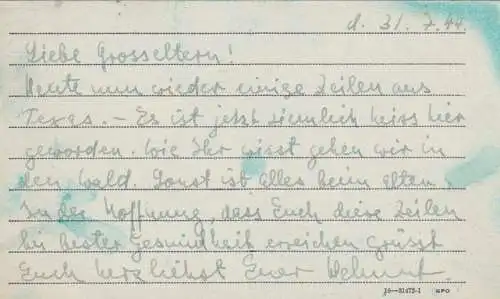 d. 31. 7. 44.
Liebe Grosseltern!
Heute nun wieder einige Zeilen aus
Texas. – Es ist jetzt ziemlich heiss hier
geworden. Wie Ihr wisst gehen wir in
den Wald. Sonst ist alles beim alten.
In der Hoffnung, dass Euch diese Zeilen
bei bester Gesundheit erreichen grüsst
Euch herzlichst Euer Helmut.
16—31472-1 GPO